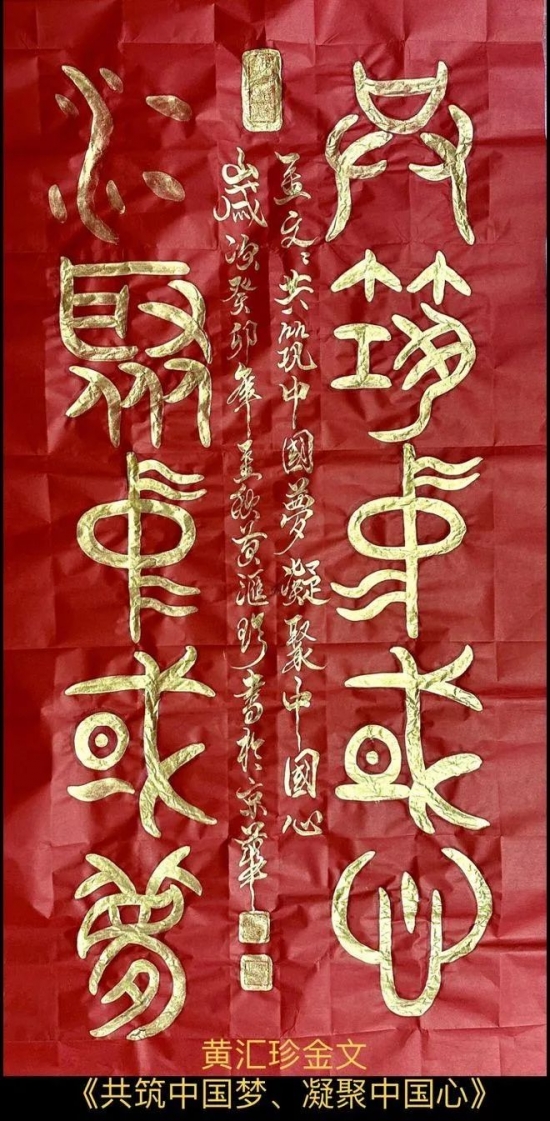 共筑中國心
金文：共筑中國夢凝聚中國心
歲次癸卯年金秋黄滙珍書於京華
凝聚中國夢
黄汇珍金文
《共筑中国梦、凝聚中国心》